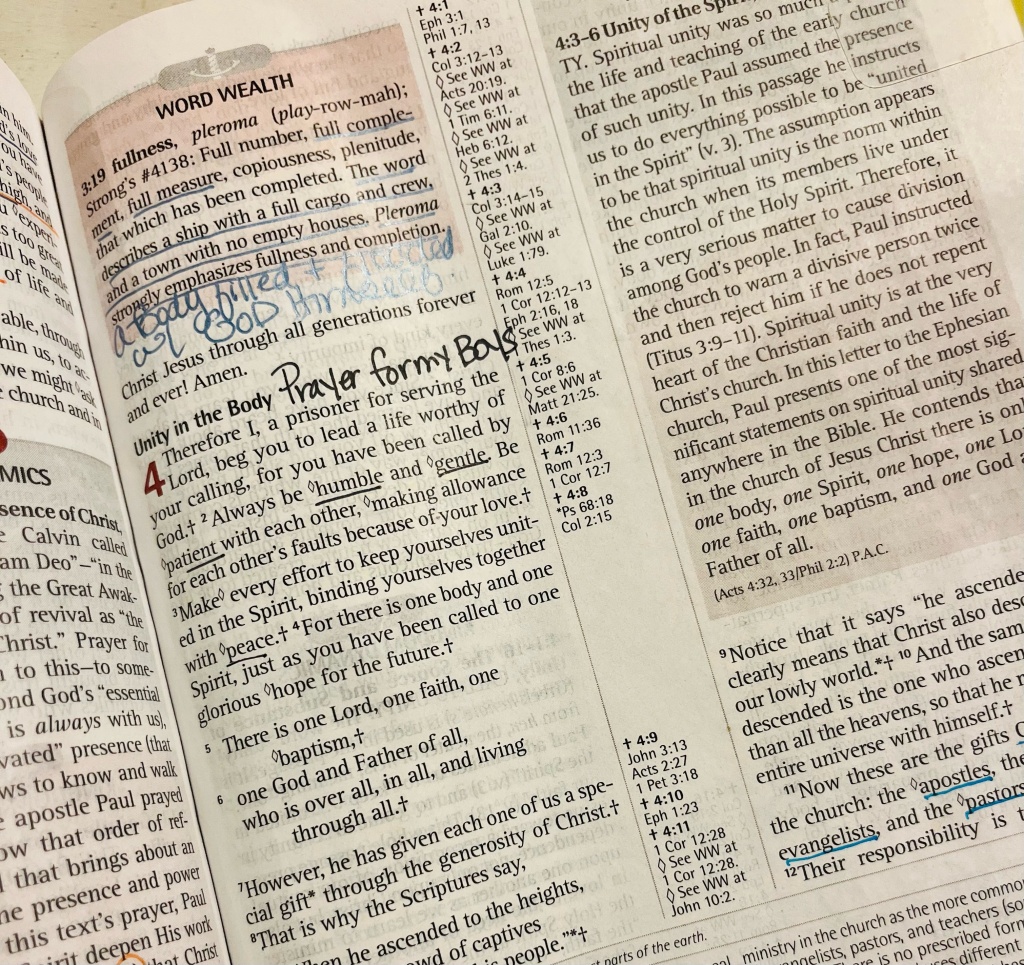 n him
d's love
ou have
s people
high, and
u ◊experi-
s too great
ill be made
of life and
able, through
hin us, to ac-
we might ◊ask
e church and in
MICS
sence of Christ,
e Calvin called
am Deo"–"in the
g the Great Awak-
of revival as "the
Christ." Prayer for
n to this—to some-
ond God's "essential
is always with us),
vated" presence (that
ws to know and walk
e apostle Paul prayed
ow that order of ref-
d that brings about an
he presence and power
this text's prayer, Paul
irit deepen His work
that Christ
WORD WEALTH
3:19 fullness, pleroma (play-row-mah);
Strong's #4138: Full number, full comple-
ment, full measure, copiousness, plenitude,
that which has been completed. The word
describes a ship with a full cargo and crew,
and a town with no empty houses, Pleroma
strongly emphasizes fullness and completion.
a Body filled +
w/ GOD Himself
Christ Jesus through all generations forever
and ever! Amen.
Unity in the Body Prayer for my Boys
4 Therefore I, a prisoner for serving the
Lord, beg you to lead a life worthy of
your calling, for you have been called by
God.† 2 Always be ◊humble and ◊gentle. Be
◊patient with each other, ◊making allowance
for each other's faults because of your love.†
3Make◊ every effort to keep yourselves unit-
ed in the Spirit, binding yourselves together
with ◊peace.† 4For there is one body and one
Spirit, just as you have been called to one
glorious ◊hope for the future.†
5 There is one Lord, one faith, one
◊baptism,†
6 one God and Father of all,
who is over all, in all, and living
through all.†
7However, he has given each one of us a spe-
cial gift* through the generosity of Christ.†
8That is why the Scriptures say,
When he ascended to the heights,
owd of captives
is people."*†
† 4:1
Eph 3:1
Phil 1:7, 13
† 4:2
Col 3:12–13
◊ See WW at
Acts 20:19.
◊ See WW at
1 Tim 6:11.
◊ See WW at
Heb 6:12.
◊ See WW at
2 Thes 1:4.
† 4:3
Col 3:14–15
◊ See WW at
Gal 2:10.
◊ See WW at
Luke 1:79.
† 4:4
Rom 12:5
1 Cor 12:12–13
Eph 2:16, 18
See WW at
Thes 1:3.
† 4:5
1 Cor 8:6
◊ See WW at
Matt 21:25.
† 4:6
Rom 11:36
† 4:7
Rom 12:3
1 Cor 12:7
† 4:8
*Ps 68:18
Col 2:15
† 4:9
John 3:13
Acts 2:27
1 Pet 3:18
† 4:10
Eph 1:23
† 4:11
1 Cor 12:28
◊ See WW at
1 Cor 12:28.
◊ See WW at
John 10:2.
4:3–6 Unity of the Spirit
TY. Spiritual unity was so much
the life and teaching of the early church
that the apostle Paul assumed the presence
of such unity. In this passage he instructs
us to do everything possible to be "united
in the Spirit" (v. 3). The assumption appears
to be that spiritual unity is the norm within
the church when its members live under
the control of the Holy Spirit. Therefore, it
is a very serious matter to cause division
among God's people. In fact, Paul instructed
the church to warn a divisive person twice
and then reject him if he does not repent
(Titus 3:9–11). Spiritual unity is at the very
heart of the Christian faith and the life of
Christ's church. In this letter to the Ephesian
church, Paul presents one of the most sig-
nificant statements on spiritual unity shared
anywhere in the Bible. He contends that
in the church of Jesus Christ there is only
one body, one Spirit, one hope, one Lo
one faith, one baptism, and one God a
Father of all.
(Acts 4:32, 33/Phil 2:2) P.A.C.
9Notice that it says "he ascende
clearly means that Christ also desc
our lowly world.*† 10 And the sam
descended is the one who ascen
than all the heavens, so that he m
entire universe with himself.†
11Now these are the gifts C
the church: the ◊apostles, the
evangelists, and the ◊pastors
12Their responsibility is t
st parts of the earth.
ministry in the church as the more common
vangelists, pastors, and teachers (so
here is no prescribed form
uses different